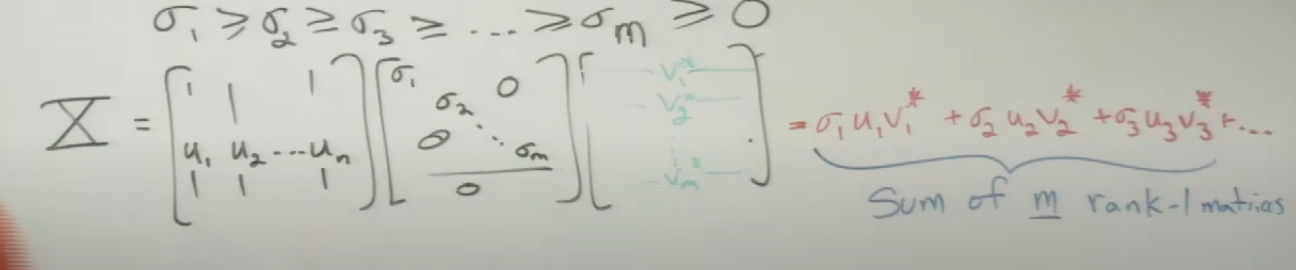 σ₁ ≥ σ₂ ≥ σ₃ ≥ ... ≥ σₘ ≥ 0
X = [u₁ u₂ ... uₙ] [σ₁ σ₂ ⋱ σₘ 0 0 0] [v₁* v₂* ⋮ vₘ*] = σ₁u₁v₁* + σ₂u₂v₂* + σ₃u₃v₃* + ...
Sum of m rank-1 matrices